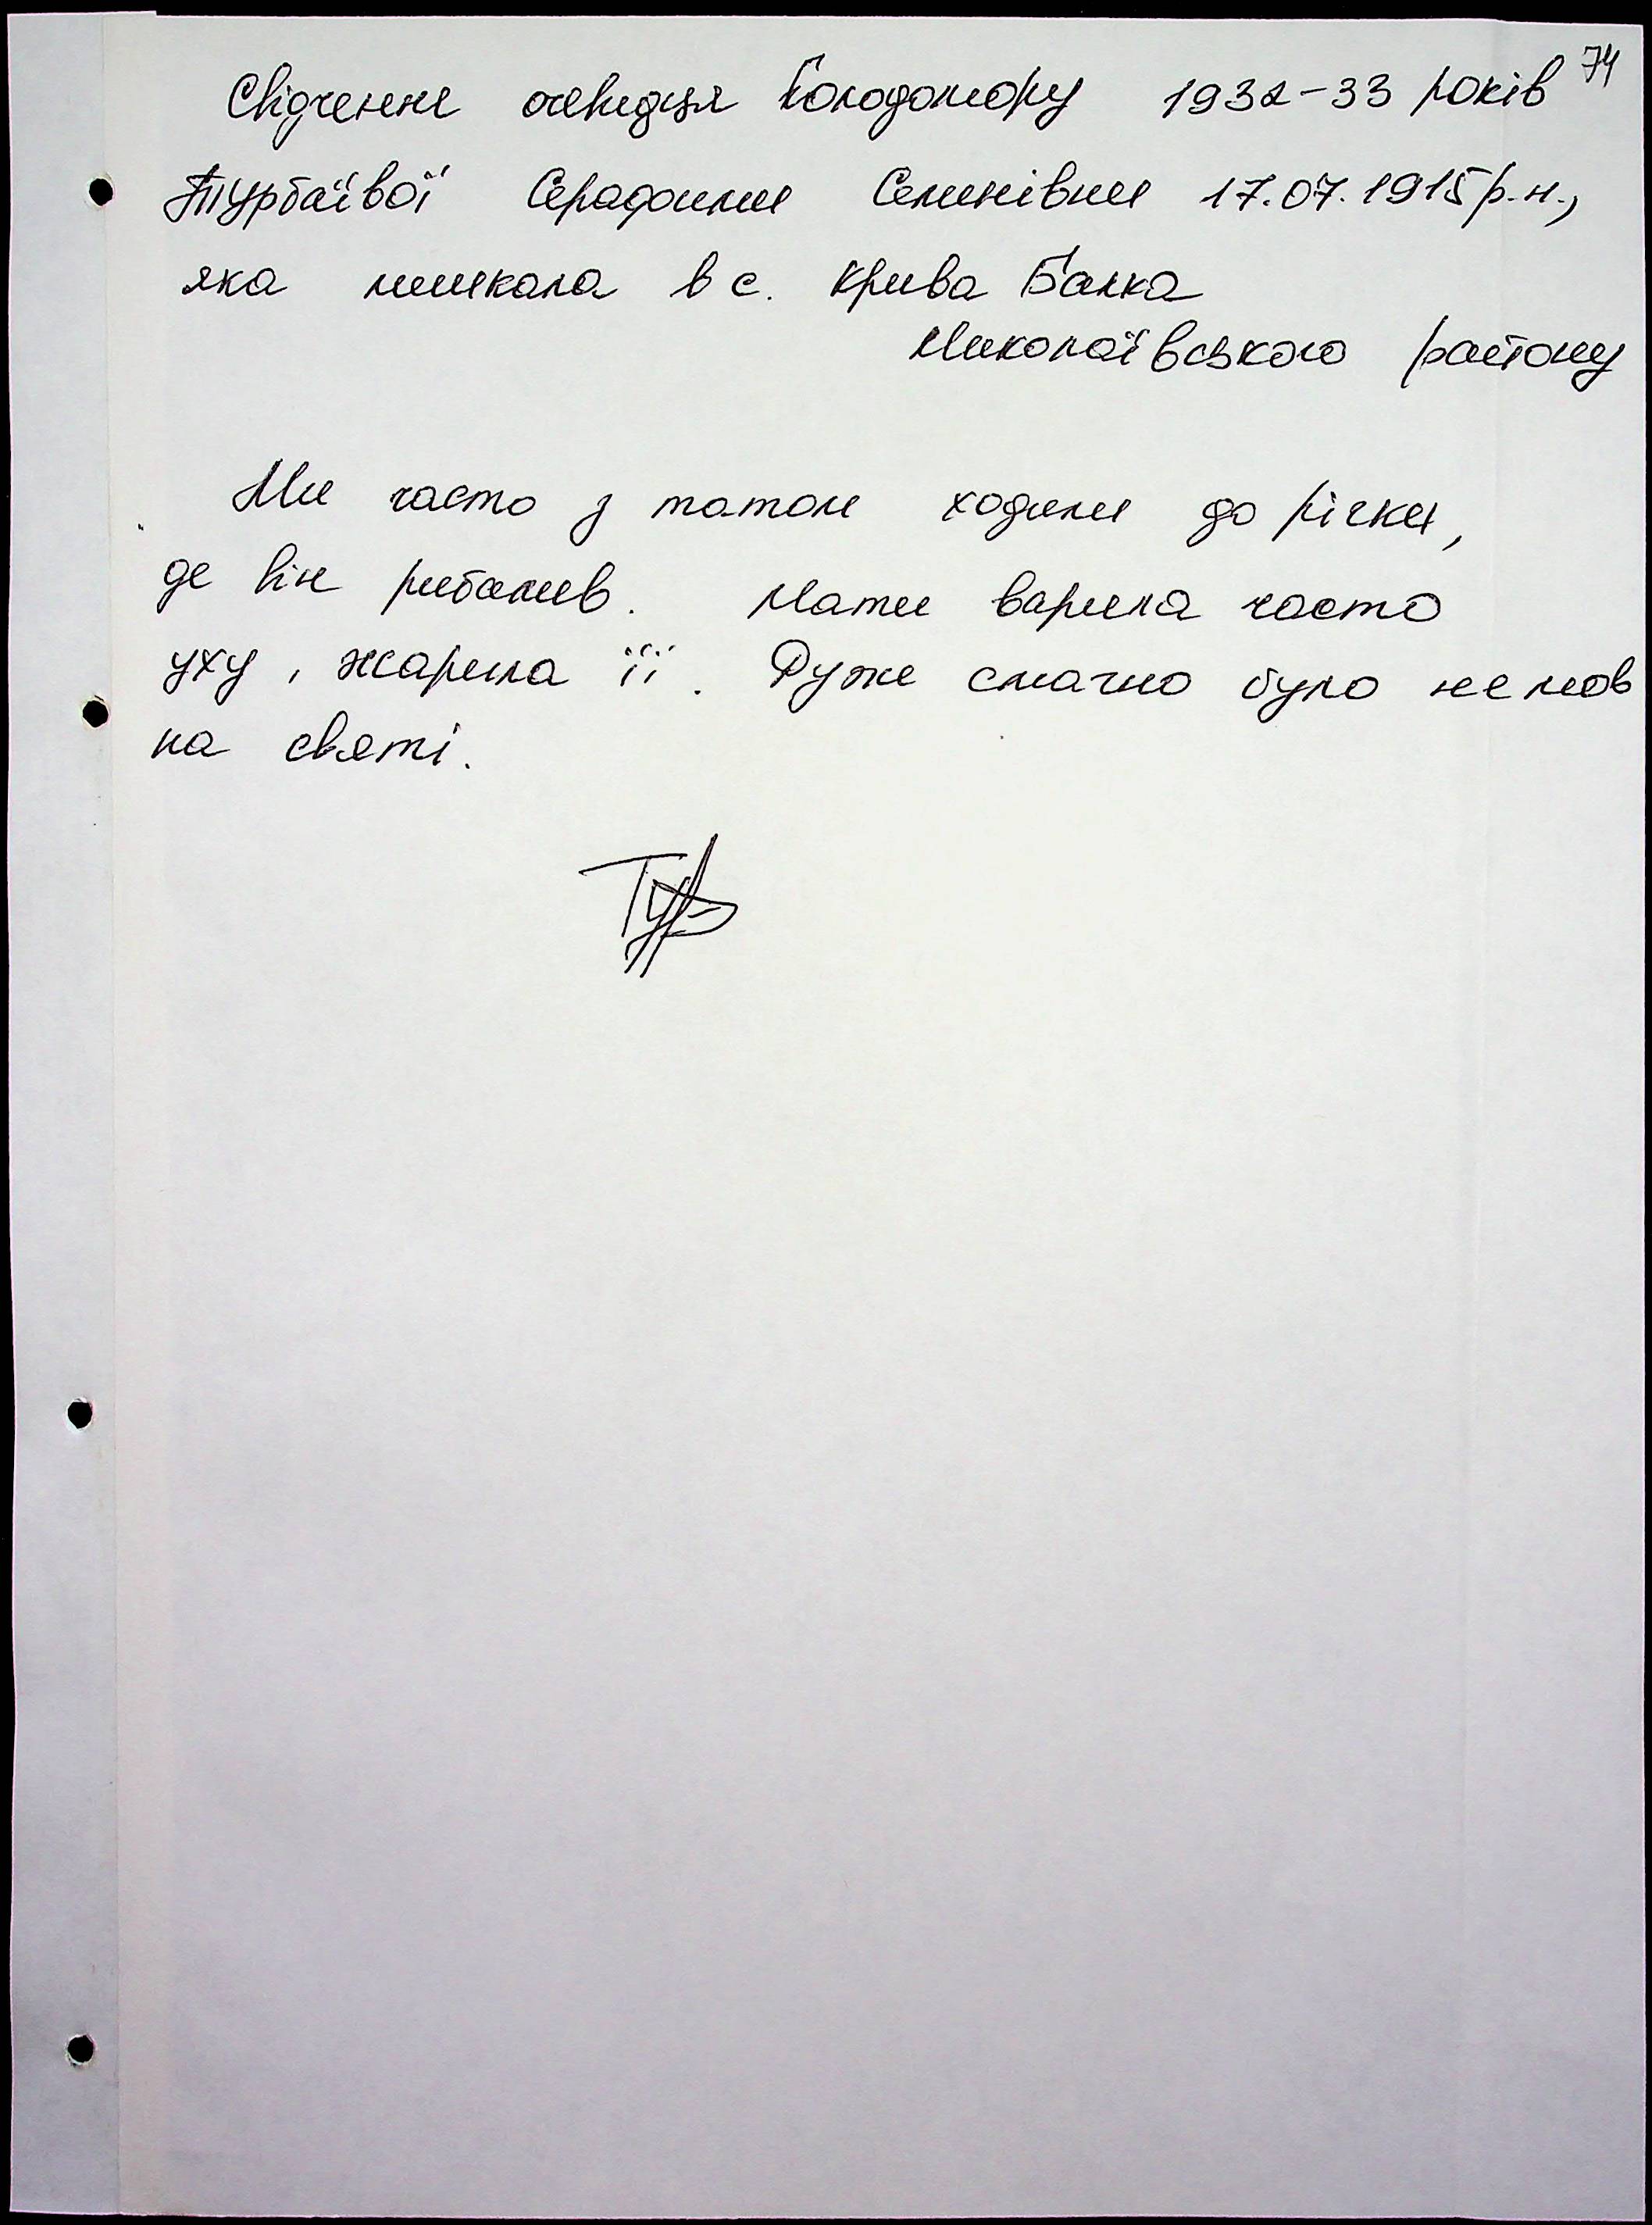 74
Свідчення очевидця Голодомору 1932-33 років
Турбаївої Серафими Семенівни 17.07.1915 р.н.,
яка мешкала в с. Крива Балка
Миколаївського району
Ми часто з татом ходили до річки,
де він рибалив. Мати варила часто
уху, жарила її. Дуже смачно було немов
на святі.